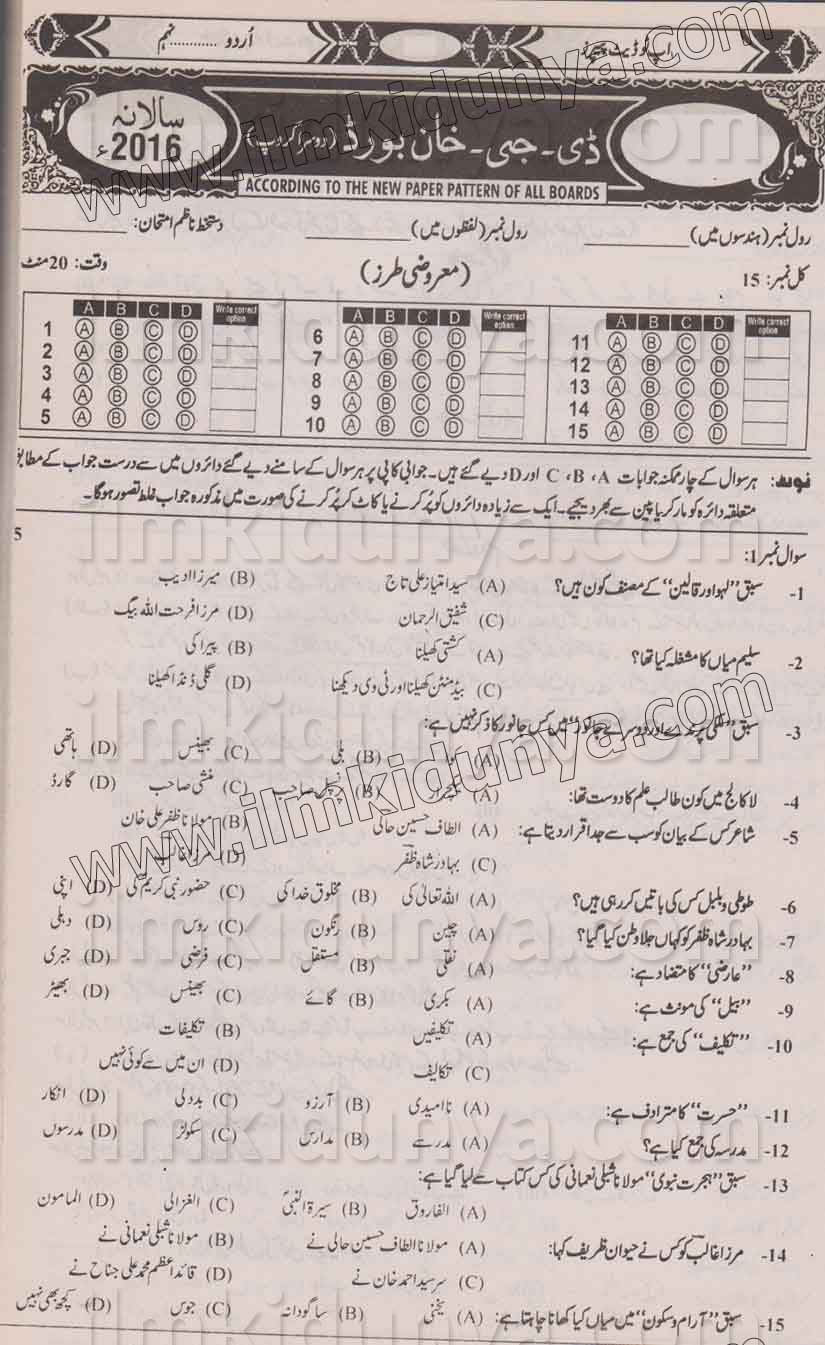 اپ ٹو ڈیٹ پیپرز
اُردو ............ نہم
سالانہ 2016ء
ڈی۔جی۔خان بورڈ (دوسرا گروپ)
ACCORDING TO THE NEW PAPER PATTERN OF ALL BOARDS
رول نمبر (ہندسوں میں) ____________ رول نمبر (لفظوں میں) ____________ دستخط ناظم امتحان: ____________
کل نمبر: 15 (معروضی طرز) وقت: 20 منٹ
A B C D Write correct option
1 A B C D
2 A B C D
3 A B C D
4 A B C D
5 A B C D
A B C D Write correct option
6 A B C D
7 A B C D
8 A B C D
9 A B C D
10 A B C D
A B C D Write correct option
11 A B C D
12 A B C D
13 A B C D
14 A B C D
15 A B C D
نوٹ: ہر سوال کے چار ممکنہ جوابات A، B، C اور D دیے گئے ہیں۔ جوابی کاپی پر ہر سوال کے سامنے دیے گئے دائروں میں سے درست جواب کے مطابق
متعلقہ دائرہ کو مارکر یا پین سے بھر دیجیے۔ ایک سے زیادہ دائروں کو پُر کرنے یا کاٹ کر پُر کرنے کی صورت میں مذکورہ جواب غلط تصور ہوگا۔
سوال نمبر 1: 5
1- سبق "لہو اور قالین" کے مصنف کون ہیں؟ (A) سید امتیاز علی تاج (B) میرزا ادیب
(C) شفیق الرحمان (D) مرزا فرحت اللہ بیگ
2- سلیم میاں کا مشغلہ کیا تھا؟ (A) کشتی کھیلنا (B) پیراکی
(C) بیڈمنٹن کھیلنا اور ٹی وی دیکھنا (D) گلی ڈنڈا کھیلنا
3- سبق "ملکی پرندے اور دوسرے جانور" میں کس جانور کا ذکر نہیں ہے:
(A) کوا (B) بلی (C) بھینس (D) ہاتھی
4- لا کالج میں کون طالب علم کا دوست تھا: (A) لیکچرار (B) پرنسپل صاحب (C) منشی صاحب (D) گارڈ
5- شاعر کس کے بیان کو سب سے جدا قرار دیتا ہے: (A) الطاف حسین حالی (B) مولانا ظفر علی خان
(C) بہادر شاہ ظفر (D) مرزا غالب
6- طوطی و بلبل کس کی باتیں کر رہی ہیں؟ (A) اللہ تعالیٰ کی (B) مخلوق خدا کی (C) حضور نبی کریمؐ کی (D) اپنی
7- بہادر شاہ ظفر کو کہاں جلا وطن کیا گیا؟ (A) چین (B) رنگون (C) روس (D) دہلی
8- "عارضی" کا متضاد ہے: (A) نقلی (B) مستقل (C) فرضی (D) جبری
9- "بیل" کی مونث ہے: (A) بکری (B) گائے (C) بھینس (D) بھیڑ
10- "تکلیف" کی جمع ہے: (A) تکلیفیں (B) تکلیفات
(C) تکالیف (D) ان میں سے کوئی نہیں
11- "حسرت" کا مترادف ہے: (A) ناامیدی (B) آرزو (C) بددلی (D) انکار
12- مدرسہ کی جمع کیا ہے؟ (A) مدرسے (B) مدارس (C) سکولز (D) مدرسوں
13- سبق "ہجرت نبوی" مولانا شبلی نعمانی کی کس کتاب سے لیا گیا ہے:
(A) الفاروق (B) سیرۃ النبیؐ (C) الغزالی (D) المامون
14- مرزا غالب کو کس نے حیوان ظریف کہا: (A) مولانا الطاف حسین حالی نے (B) مولانا شبلی نعمانی نے
(C) سر سید احمد خان نے (D) قائد اعظم محمد علی جناح نے
15- سبق "آرام و سکون" میں میاں کیا کھانا چاہتا ہے: (A) یخنی (B) ساگودانہ (C) جوس (D) کچھ بھی نہیں
www.ilmkidunya.com
www.ilmkidunya.com
ilmkidunya.com
ilmkidunya.com
ilmkidunya.com
ilmkidunya.com
ilmkidunya.com
ilmkidunya.com
ilmkidunya.com